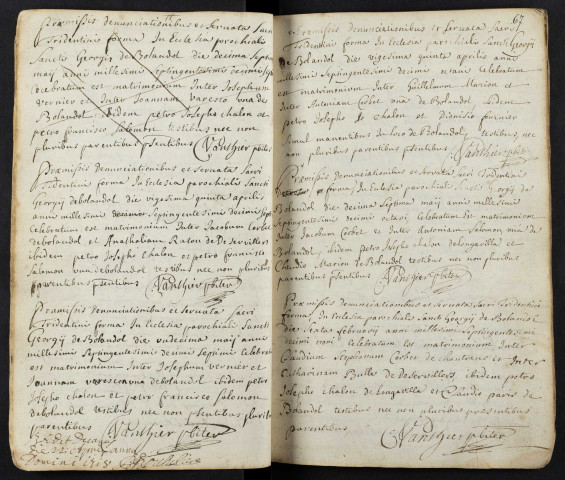 Praemissis denunciationibus et servata Sacri
Tridentinis forma In Ecclesia parochialis
Sanctis Georgij de Bolandol die decima Septim
maij anni millesimi Septingentesimi decimi Sep
Celebratum est matrimonium Inter Josephum
vernier et Inter Joannam varesco una de
Bolandol ibidem petro Josepho chalon et
petro francisco Salomon testibus nec non
pluribus parentibus p̃sentibus Vanthier p̃biter
Praemissis denunciationibus et servata Sacri
Tridentini forma In Ecclesia parochialis Sancti
Georgij debolandol die vigesima quinta aprilis
anni millesimi Septingentesimi decimi Sep
Celebratum est matrimonium Inter Jacobum Corbet
debolandol et Anatholiam Raton de Deservilles
ibidem petro Josepho chalon et petro francisco
Salomon una debolandol testibus nec non pluribus
parentibus p̃sentibus Vanthier p̃biter
Praemissis denunciationibus et servata Sacri
Tridentini forma In Ecclesia parochialis Sancti
Georgij de Bolandol die undecima maij anni
millesimi Septingentesimi decimi Septimi Celebra
est matrimonium Inter Josephum vernier et
Joannam varesco una debolandol ibidem petro
Josepho chalon et petro francisco Salomon
debolandol testibus nec non p̃sentibus pluribus
parentibus Vanthier p̃biter
Domini 1718
67
Praemissis denunciationibus et servata Sacri
Tridentini forma In Ecclesia parochialis Sancti Georgij
de Bolandol die vigesima quinta aprilis anni
millesimi Septingentesimi decimi octavi Celebratum
est matrimonium Inter Guillelmum Marion et
Inter Antoniam Corbet una de Bolandol ibidem
petro Josepho chalon et Dionisio fournier
Simul manentibus de loco de Bolandol testibus nec
non pluribus parentibus p̃sentibus Vanthier p̃biter
Praemissis Denunciationibus et servata Sacri Tridentini
forma In Ecclesia parochialis Sancti Georgij de
Bolandol die decima Septima maij anni millesimi
Septingentesimi decimi octavi Celebratum est matrimonium
Inter Jacobum Corbet et Inter Antoniam Salomon una de
Bolandol ibidem petro Josepho chalon delongevilla et
Claudio Marion de Bolandol testibus nec non pluribus
parentibus p̃sentibus Vanthier p̃biter
Praemissis denunciationibus et servata Sacri Tridentini
forma In Ecclesia parochialis Sancti Georgij de Bolandol
die Sextas februarij anni millesimi Septingentesimi
decimi noni Celebratum est matrimonium Inter
Claudium Stephanum Corbet de chantrans et Inter
Catharinam Bulle de Deservillers ibidem petro
Josepho chalon de Longeville et Claudio paris de
Bolandol testibus nec non pluribus praesentibus
parentibus Vanthier p̃biter